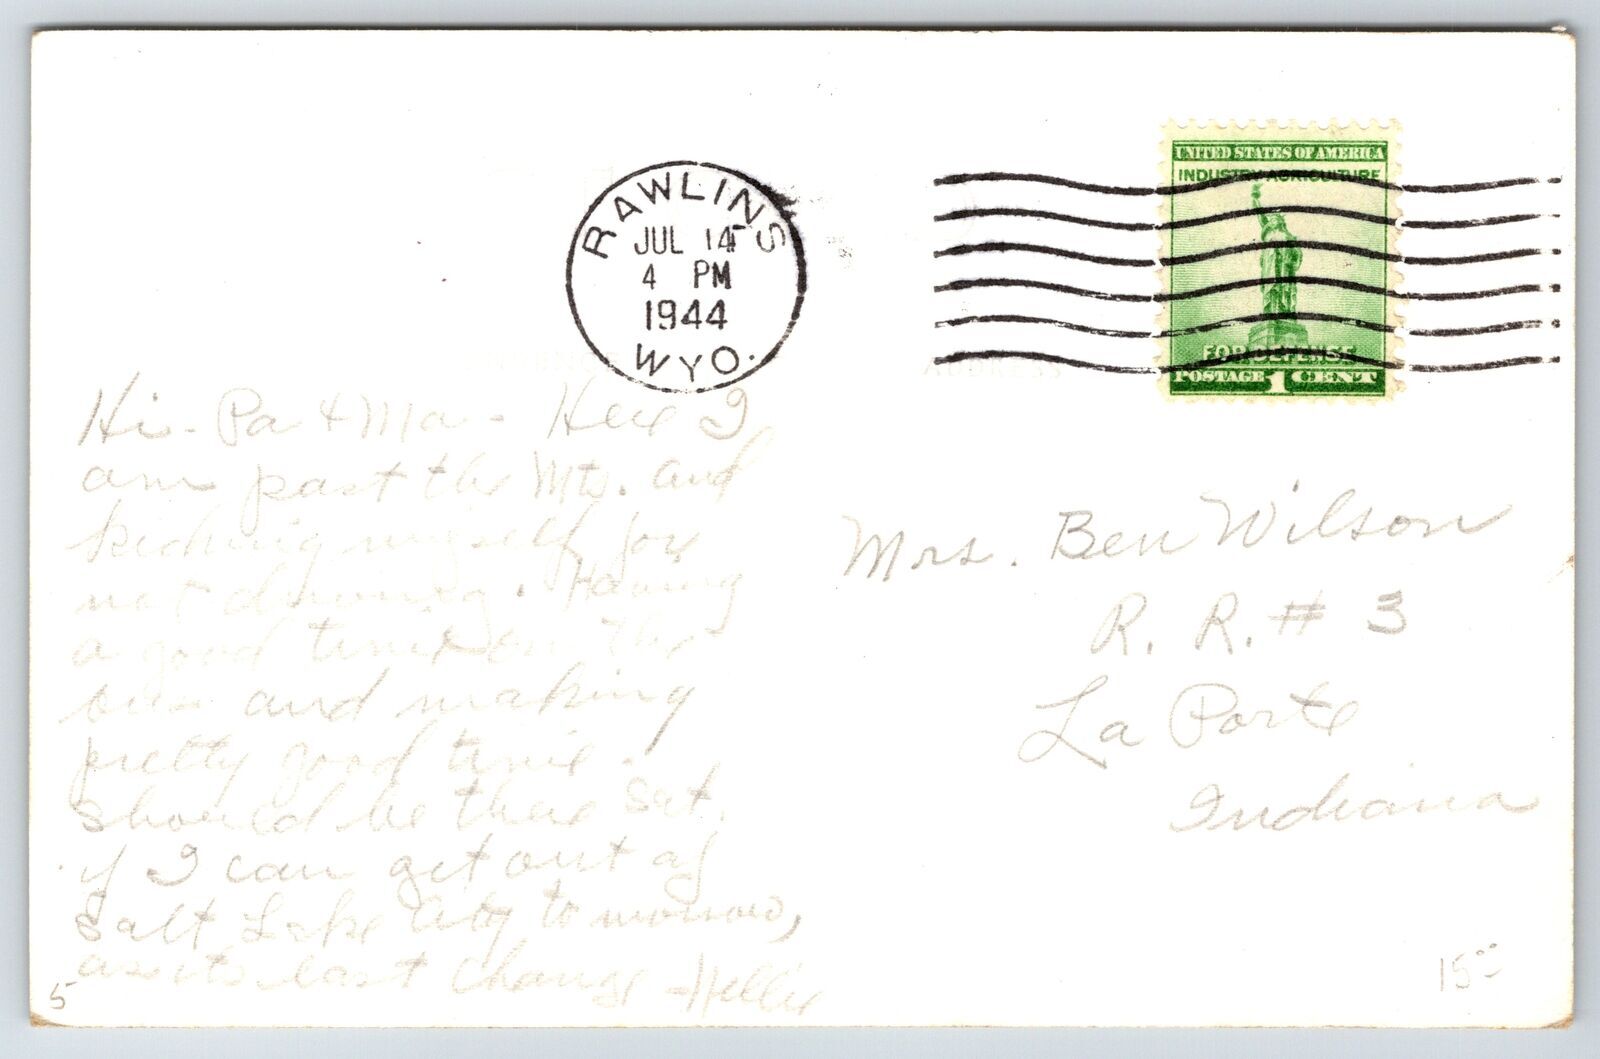 RAWLINS
JUL 14
4 PM
1944
WYO.
UNITED STATES OF AMERICA
INDUSTRY AGRICULTURE
FOR DEFENSE
POSTAGE 1 CENT
ADDRESS
Hi - Pa & Ma - Here I
am past the Mts. and
kicking myself for
not driving. Having
a good time on the
bus and making
pretty good time.
Should be there Sat.
if I can get out of
Salt Lake City tomorrow,
as its last change -
5
Mrs. Ben Wilson
R. R. # 3
La Porte
Indiana
15⁰⁰